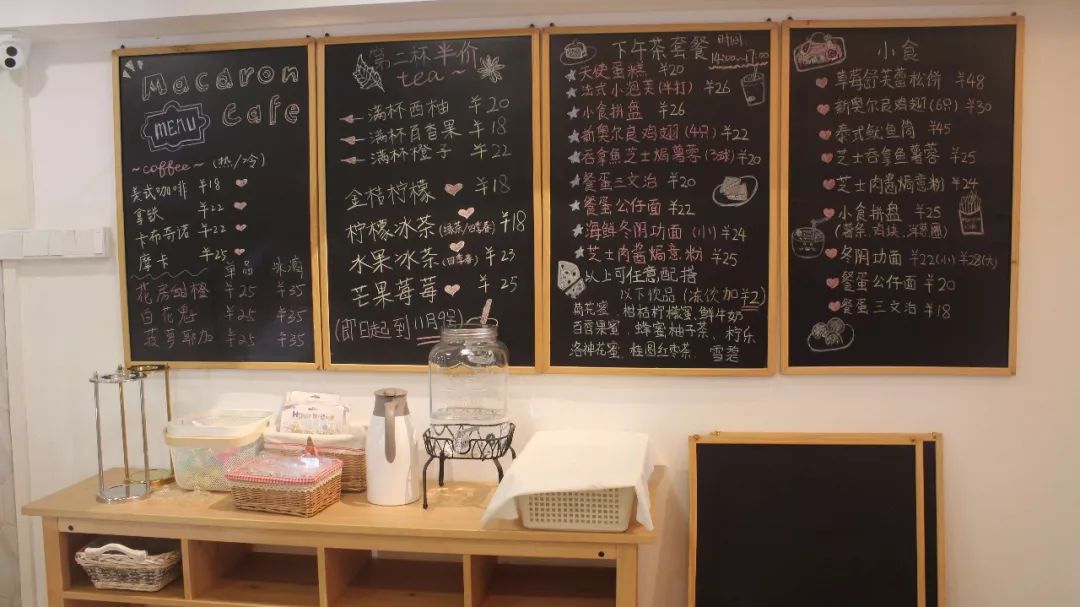 Macaron
Cafe
MENU
~coffee~ (热/冷)
美式咖啡 ¥18
拿铁 ¥22
卡布奇诺 ¥22
摩卡 ¥25
单品 冰滴
花房甜橙 ¥25 ¥35
白花魁 ¥25 ¥35
菠萝耶加 ¥25 ¥35
第二杯半价
tea~
满杯西柚 ¥20
满杯百香果 ¥18
满杯橙子 ¥22
金桔柠檬 ¥18
柠檬冰茶 ¥18
水果冰茶 ¥23
芒果莓莓 ¥25
(即日起到11月9号)
下午茶套餐 时间
14:00~17:00
天使蛋糕 ¥20
法式小泡芙(半打) ¥26
小食拼盘 ¥26
新奥尔良鸡翅(4只) ¥22
吞拿鱼芝士焗薯蓉(3球) ¥20
餐蛋三文治 ¥20
餐蛋公仔面 ¥22
海鲜冬阴功面 (小) ¥24
芝士肉酱焗意粉 ¥25
以上可任意配搭
以下饮品 (冻饮加¥2)
菊花蜜、柑桔柠檬蜜、鲜牛奶
百香果蜜、蜂蜜柚子茶、柠乐
洛神花蜜、桂圆红枣茶、雪碧
小食
草莓舒芙蕾松饼 ¥48
新奥尔良鸡翅(6只) ¥30
泰式鱿鱼筒 ¥45
芝士吞拿鱼薯蓉 ¥25
芝士肉酱焗意粉 ¥24
小食拼盘 ¥25
(薯条、鸡块、洋葱圈)
冬阴功面 ¥22(小) ¥28(大)
餐蛋公仔面 ¥20
餐蛋三文治 ¥18